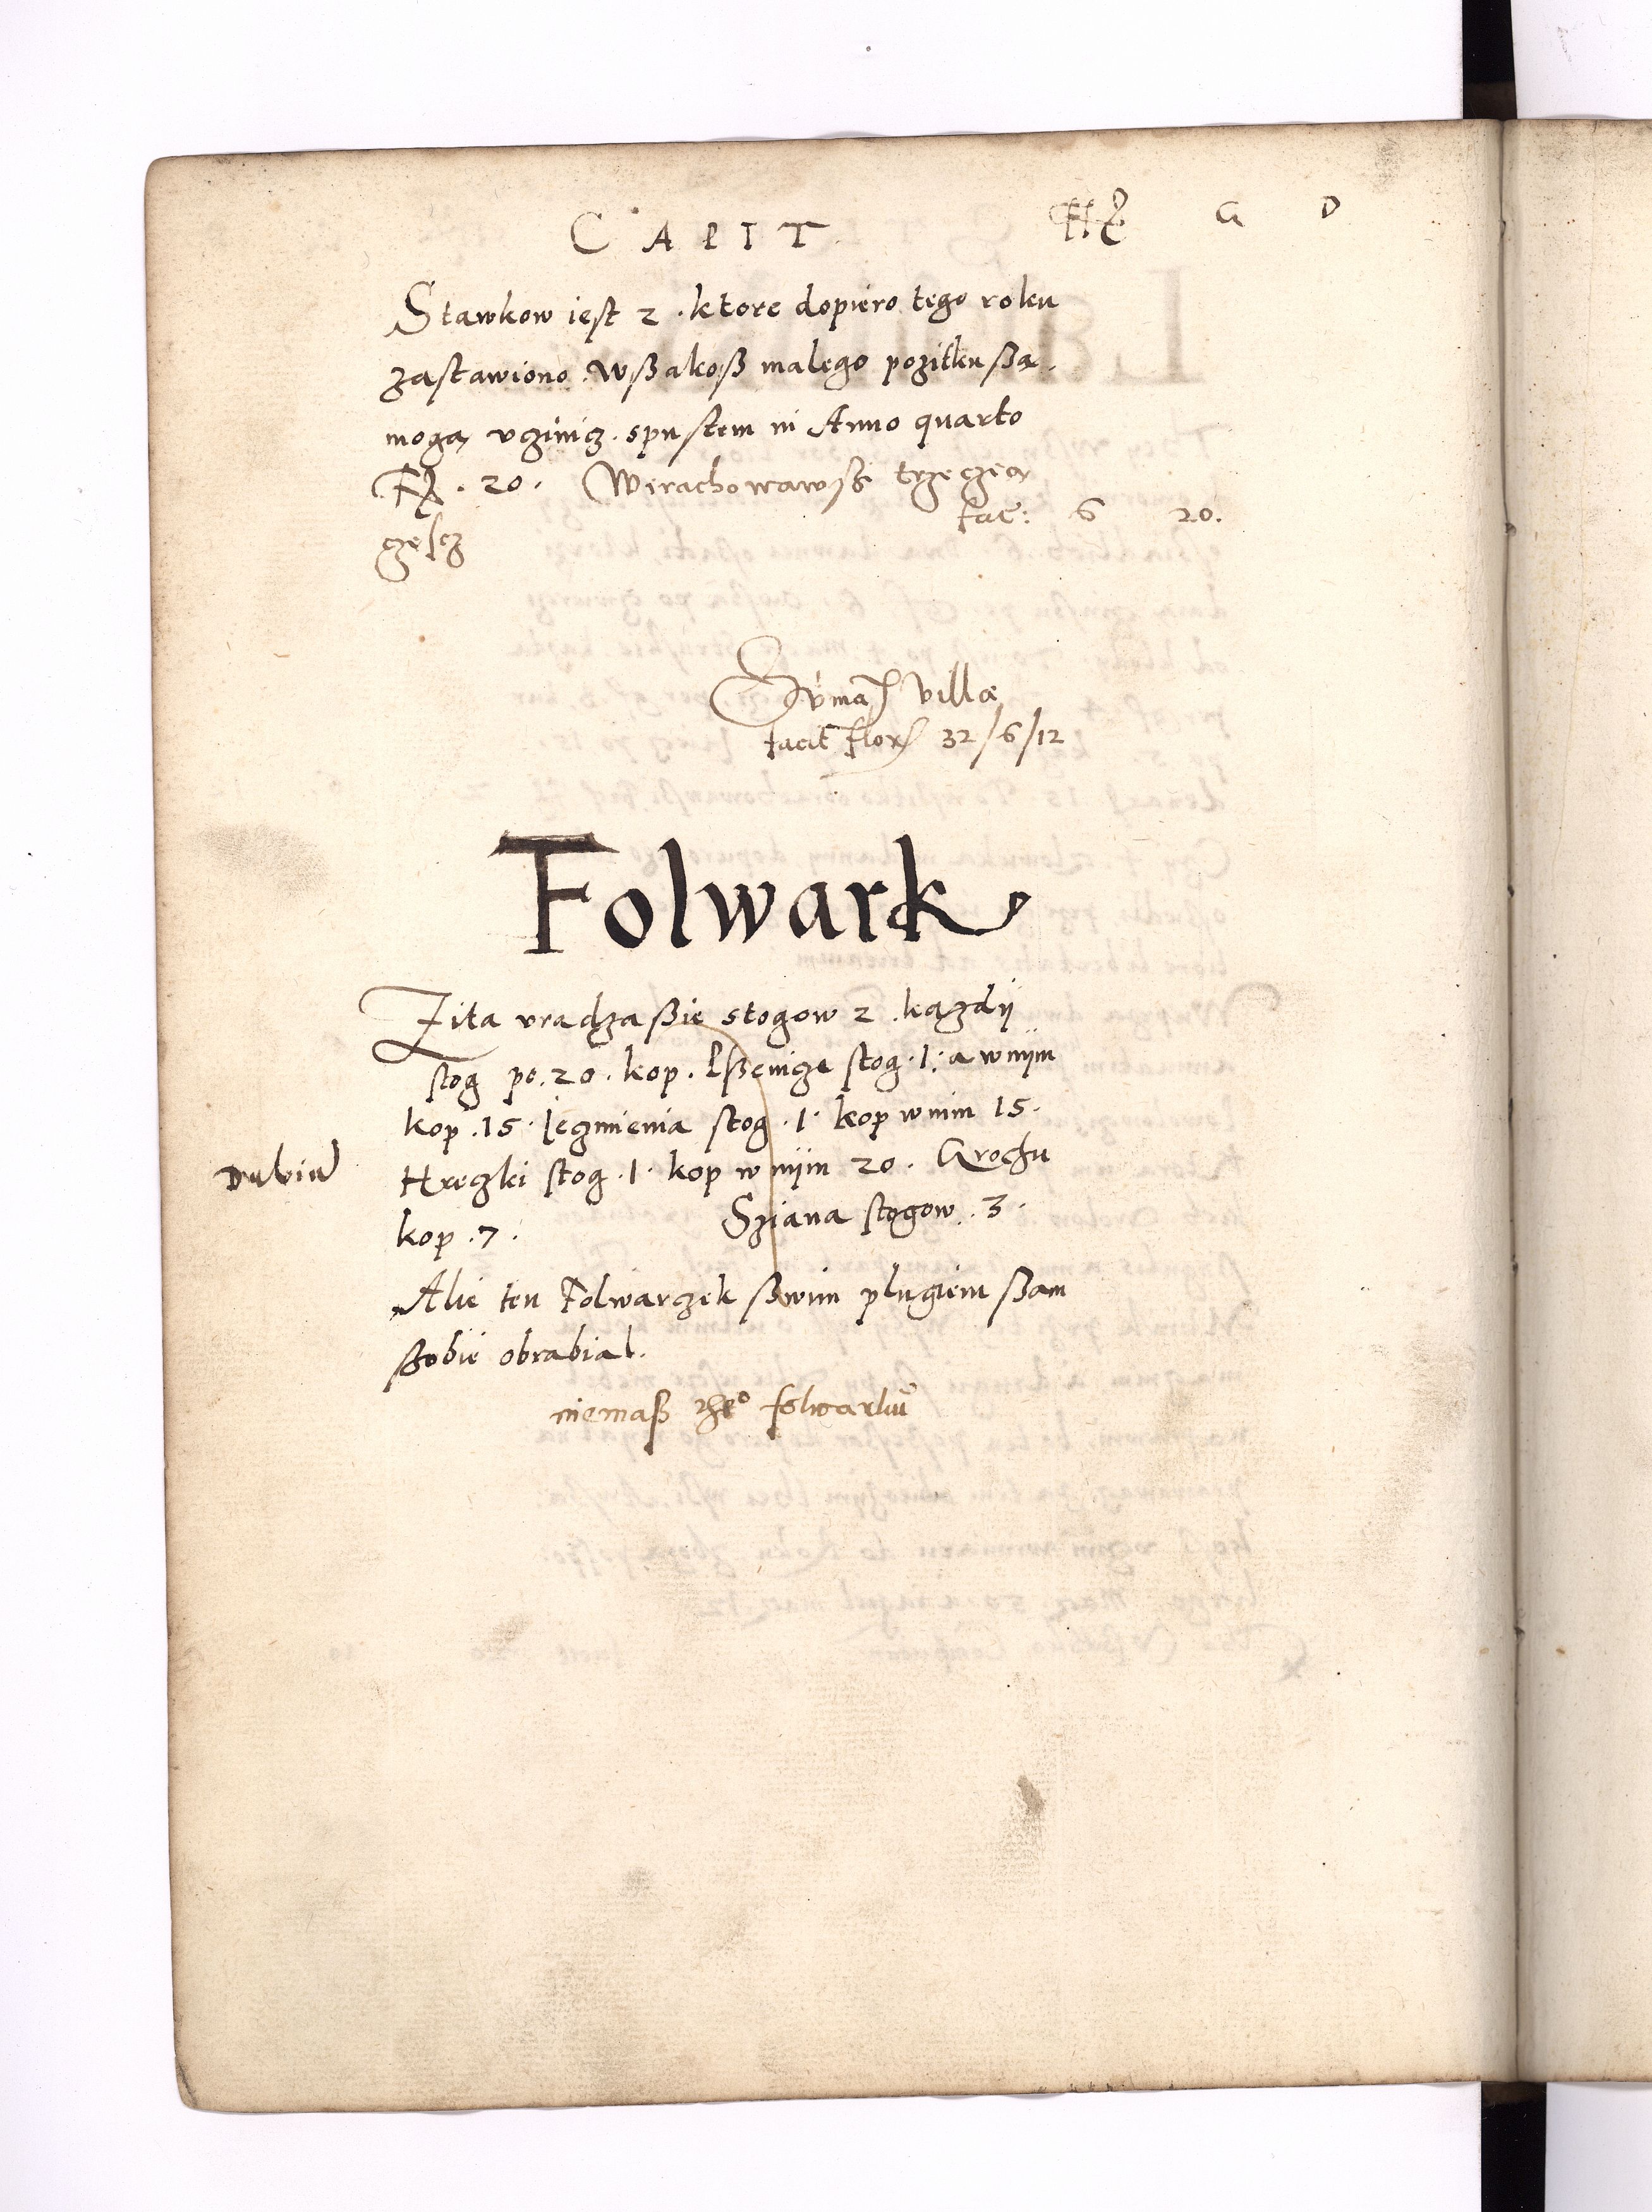 CAPIT G D
Stawkow iest 2. ktore dopiero tego roku
zastawiono. Wßakoß malego pozitku ßa.
moga vczinicz. spustem in Anno quarto
20. Wirachowawßi trzeczea
fac: 6 20.
czescz
Suma Villæ
facit flor 32/6/12
Folwark
Zita vradza ßie stogow 2. kazdÿ
stog po. 20. kop. Pßenicze stog. 1. a wnÿm
kop. 15. Jeczmienia stog. 1. kop wnim 15.
Dubiu Hreczki stog. 1. kop w nÿm 20. Grochu
kop. 7. Sziana stogow. 3.
Alie ten Folwarczek ßwim plugiem ßam
ßobie obrabial.
niemaß the° folwarku